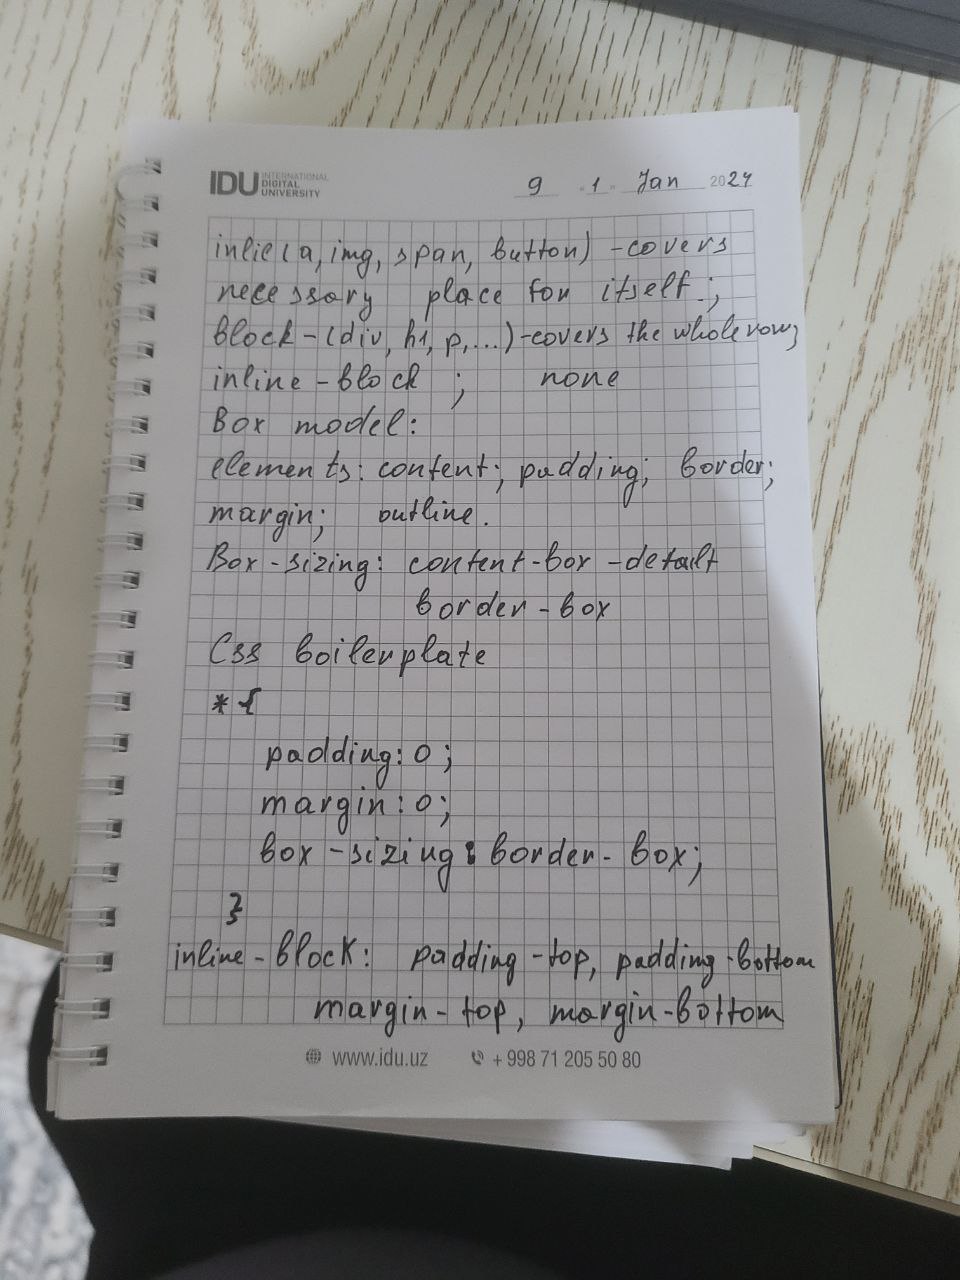 IDU INTERNATIONAL
DIGITAL
UNIVERSITY
9 1 Jan 2024
inlie(a, img, span, button) -covers
necessary place for itself;
block-(div, h1, p,...)-covers the whole row;
inline-block ; none
Box model:
elements: content; padding; border;
margin; outline.
Box-sizing: content-box -detailt
border-box
Css boilerplate
*{
padding: 0;
margin: 0;
box-sizing: border-box;
}
inline-block: padding-top, padding-bottom
margin-top, margin-bottom
www.idu.uz +998 71 205 50 80